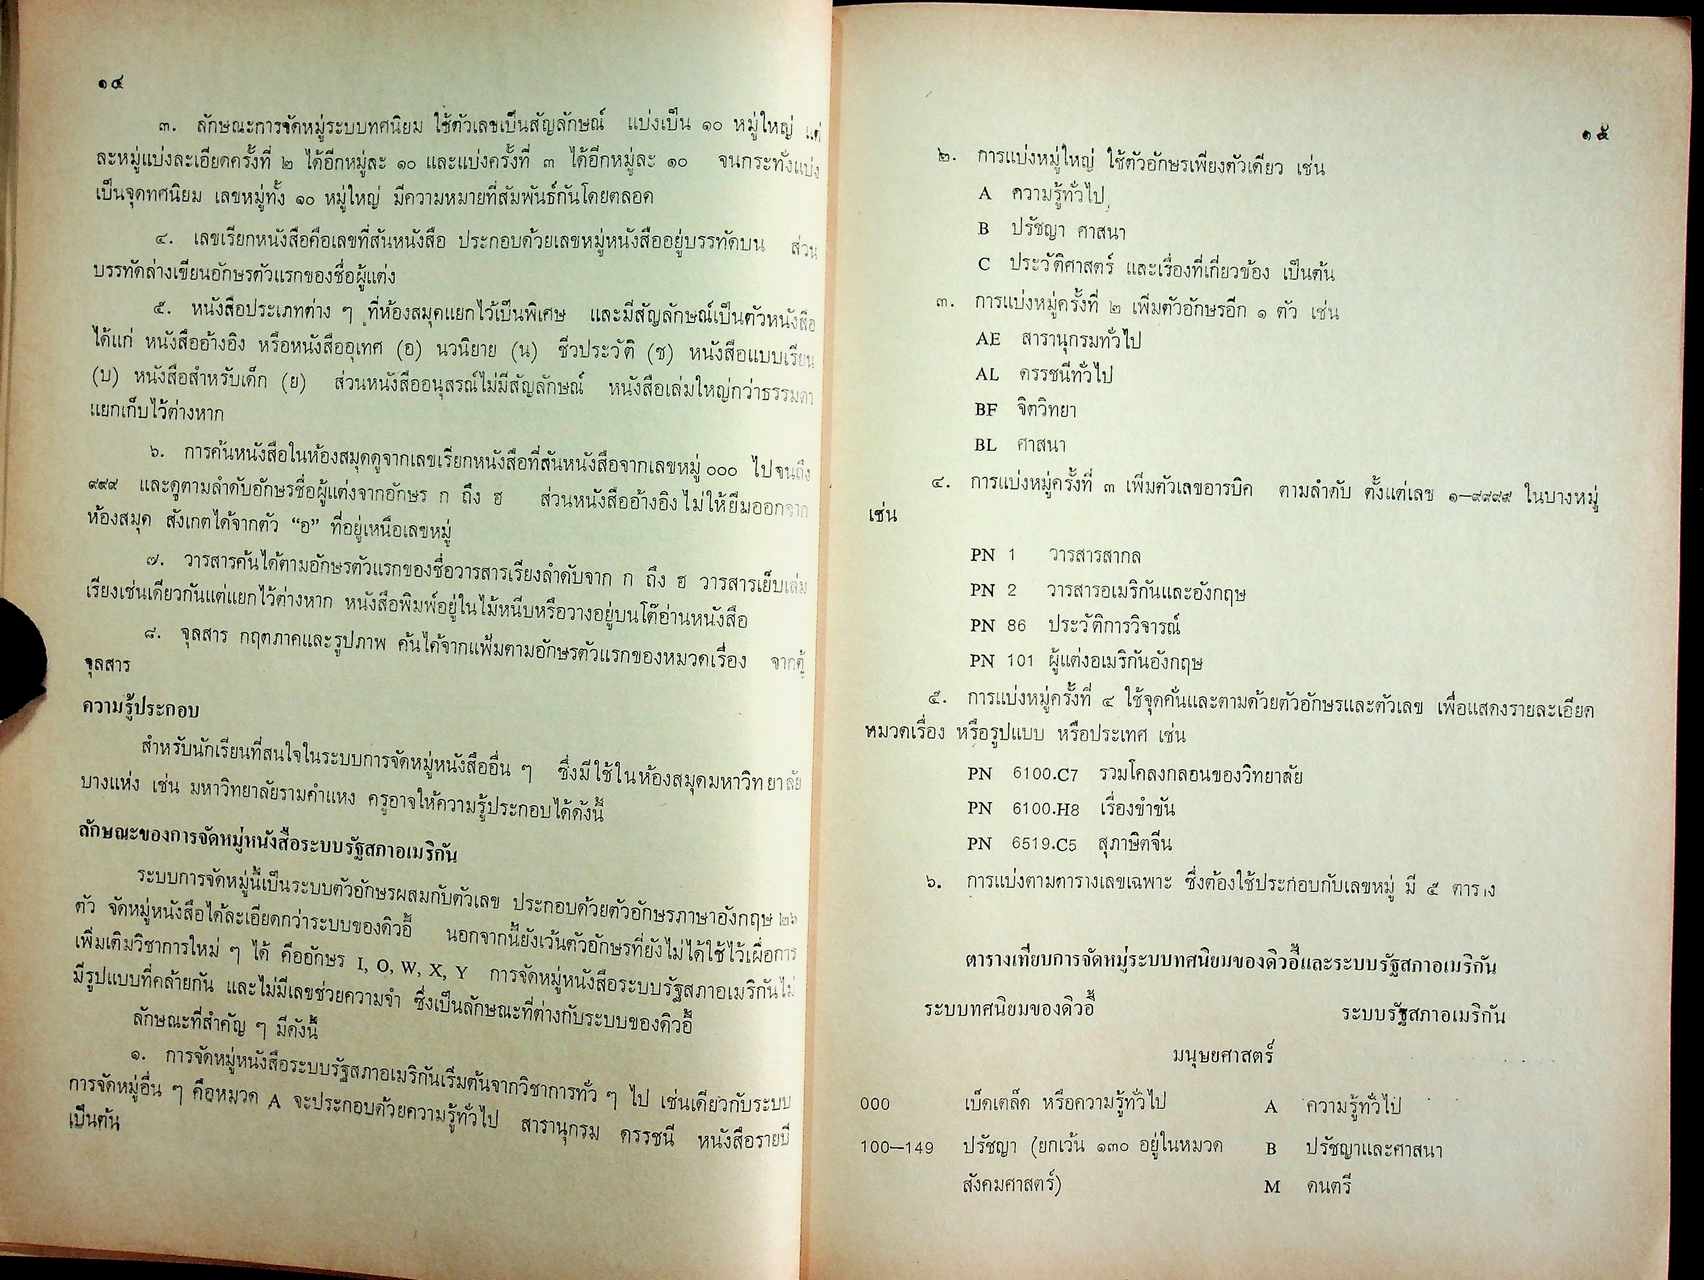 ๑๔
๓. ลักษณะการจัดหมู่ระบบทศนิยม ใช้ตัวเลขเป็นสัญลักษณ์ แบ่งเป็น ๑๐ หมู่ใหญ่ แต่
ละหมู่แบ่งละเอียดครั้งที่ ๒ ได้อีกหมู่ละ ๑๐ และแบ่งครั้งที่ ๓ ได้อีกหมู่ละ ๑๐ จนกระทั่งแบ่ง
เป็นจุดทศนิยม เลขหมู่ทั้ง ๑๐ หมู่ใหญ่ มีความหมายที่สัมพันธ์กันโดยตลอด
๔. เลขเรียกหนังสือคือเลขที่สันหนังสือ ประกอบด้วยเลขหมู่หนังสืออยู่บรรทัดบน ส่วน
บรรทัดล่างเขียนอักษรตัวแรกของชื่อผู้แต่ง
๕. หนังสือประเภทต่าง ๆ ที่ห้องสมุดแยกไว้เป็นพิเศษ และมีสัญลักษณ์เป็นตัวหนังสือ
ได้แก่ หนังสืออ้างอิง หรือหนังสืออุเทศ (อ) นวนิยาย (น) ชีวประวัติ (ช) หนังสือแบบเรียน
(บ) หนังสือสำหรับเด็ก (ย) ส่วนหนังสืออนุสรณ์ไม่มีสัญลักษณ์ หนังสือเล่มใหญ่กว่าธรรมดา
แยกเก็บไว้ต่างหาก
๖. การค้นหนังสือในห้องสมุดดูจากเลขเรียกหนังสือที่สันหนังสือจากเลขหมู่ ๐๐๐ ไปจนถึง
๙๙๙ และดูตามลำดับอักษรชื่อผู้แต่งจากอักษร ก ถึง ฮ ส่วนหนังสืออ้างอิง ไม่ให้ยืมออกจาก
ห้องสมุด สังเกตได้จากตัว “อ” ที่อยู่เหนือเลขหมู่
๗. วารสารค้นได้ตามอักษรตัวแรกของชื่อวารสารเรียงลำดับจาก ก ถึง ฮ วารสารเย็บเล่ม
เรียงเช่นเดียวกันแต่แยกไว้ต่างหาก หนังสือพิมพ์อยู่ในไม้หนีบหรือวางอยู่บนโต๊อ่านหนังสือ
๘. จุลสาร กฤตภาคและรูปภาพ ค้นได้จากแฟ้มตามอักษรตัวแรกของหมวดเรื่อง จากตู้
จุลสาร
ความรู้ประกอบ
สำหรับนักเรียนที่สนใจในระบบการจัดหมู่หนังสืออื่น ๆ ซึ่งมีใช้ในห้องสมุดมหาวิทยาลัย
บางแห่ง เช่น มหาวิทยาลัยรามคำแหง ครูอาจให้ความรู้ประกอบได้ดังนี้
ลักษณะของการจัดหมู่หนังสือระบบรัฐสภาอเมริกัน
ระบบการจัดหมู่นี้เป็นระบบตัวอักษรผสมกับตัวเลข ประกอบด้วยตัวอักษรภาษาอังกฤษ ๒๖
ตัว จัดหมู่หนังสือได้ละเอียดกว่าระบบของดิวอี้ นอกจากนี้ยังเว้นตัวอักษรที่ยังไม่ได้ใช้ไว้เผื่อการ
เพิ่มเติมวิชาการใหม่ ๆ ได้ คืออักษร I, O, W, X, Y การจัดหมู่หนังสือระบบรัฐสภาอเมริกันไม่
มีรูปแบบที่คล้ายกัน และไม่มีเลขช่วยความจำ ซึ่งเป็นลักษณะที่ต่างกับระบบของดิวอี้
ลักษณะที่สำคัญ ๆ มีดังนี้
๑. การจัดหมู่หนังสือระบบรัฐสภาอเมริกันเริ่มต้นจากวิชาการทั่ว ๆ ไป เช่นเดียวกับระบบ
การจัดหมู่อื่น ๆ คือหมวด A จะประกอบด้วยความรู้ทั่วไป สารานุกรม ดรรชนี หนังสือรายปี
เป็นต้น
๑๕
๒. การแบ่งหมู่ใหญ่ ใช้ตัวอักษรเพียงตัวเดียว เช่น
A ความรู้ทั่วไป
B ปรัชญา ศาสนา
C ประวัติศาสตร์ และเรื่องที่เกี่ยวข้อง เป็นต้น
๓. การแบ่งหมู่ครั้งที่ ๒ เพิ่มตัวอักษรอีก ๑ ตัว เช่น
AE สารานุกรมทั่วไป
AL ดรรชนีทั่วไป
BF จิตวิทยา
BL ศาสนา
๔. การแบ่งหมู่ครั้งที่ ๓ เพิ่มตัวเลขอารบิค ตามลำดับ ตั้งแต่เลข ๑–๙๙๙๙ ในบางหมู่
เช่น
PN 1 วารสารสากล
PN 2 วารสารอเมริกันและอังกฤษ
PN 86 ประวัติการวิจารณ์
PN 101 ผู้แต่งอเมริกันอังกฤษ
๕. การแบ่งหมู่ครั้งที่ ๔ ใช้จุดคั่นและตามด้วยตัวอักษรและตัวเลข เพื่อแสดงรายละเอียด
หมวดเรื่อง หรือรูปแบบ หรือประเทศ เช่น
PN 6100.C7 รวมโคลงกลอนของวิทยาลัย
PN 6100.H8 เรื่องขำขัน
PN 6519.C5 สุภาษิตจีน
๖. การแบ่งตามตารางเลขเฉพาะ ซึ่งต้องใช้ประกอบกับเลขหมู่ มี ๕ ตาราง
ตารางเทียบการจัดหมู่ระบบทศนิยมของดิวอี้และระบบรัฐสภาอเมริกัน
ระบบทศนิยมของดิวอี้ ระบบรัฐสภาอเมริกัน
มนุษยศาสตร์
000 เบ็ดเตล็ด หรือความรู้ทั่วไป A ความรู้ทั่วไป
100—149 ปรัชญา (ยกเว้น ๑๓๐ อยู่ในหมวด B ปรัชญาและศาสนา
สังคมศาสตร์) M ดนตรี